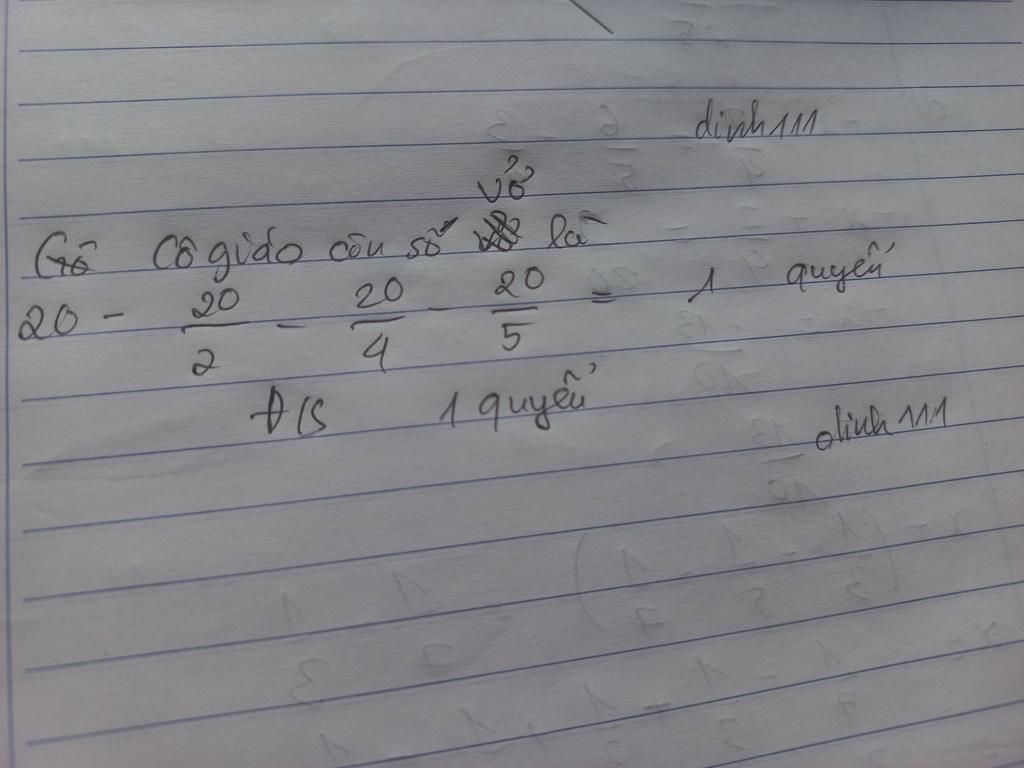 dinh111
vở
Cô giáo còn số là
20 - 20/2 - 20/4 - 20/5 = 1 quyển
Đ/S 1 quyển
dinh111